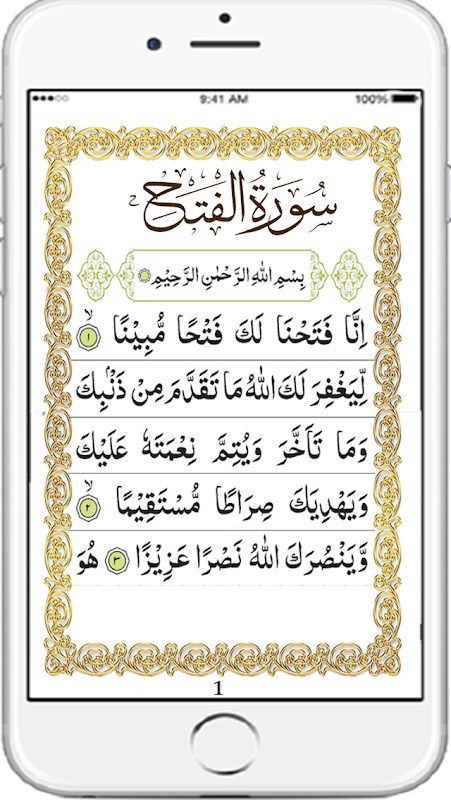 9:41 AM 100%
سُورَةُ الفَتح
بِسْمِ اللهِ الرَّحْمٰنِ الرَّحِيْمِ
اِنَّا فَتَحْنَا لَكَ فَتْحًا مُّبِيْنًا ۙ ١
لِّيَغْفِرَ لَكَ اللهُ مَا تَقَدَّمَ مِنْ ذَنْۢبِكَ
وَمَا تَاَخَّرَ وَيُتِمَّ نِعْمَتَهٗ عَلَيْكَ
وَيَهْدِيَكَ صِرَاطًا مُّسْتَقِيْمًا ۙ ٢
وَّيَنْصُرَكَ اللهُ نَصْرًا عَزِيْزًا ٣ هُوَ
1